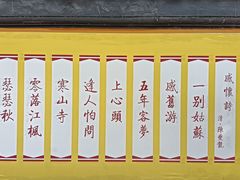 感懷詩
清·陳夔龍
一別姑蘇
感舊游
五年客夢
上心頭
逢人怕問
寒山寺
零落江楓
瑟瑟秋